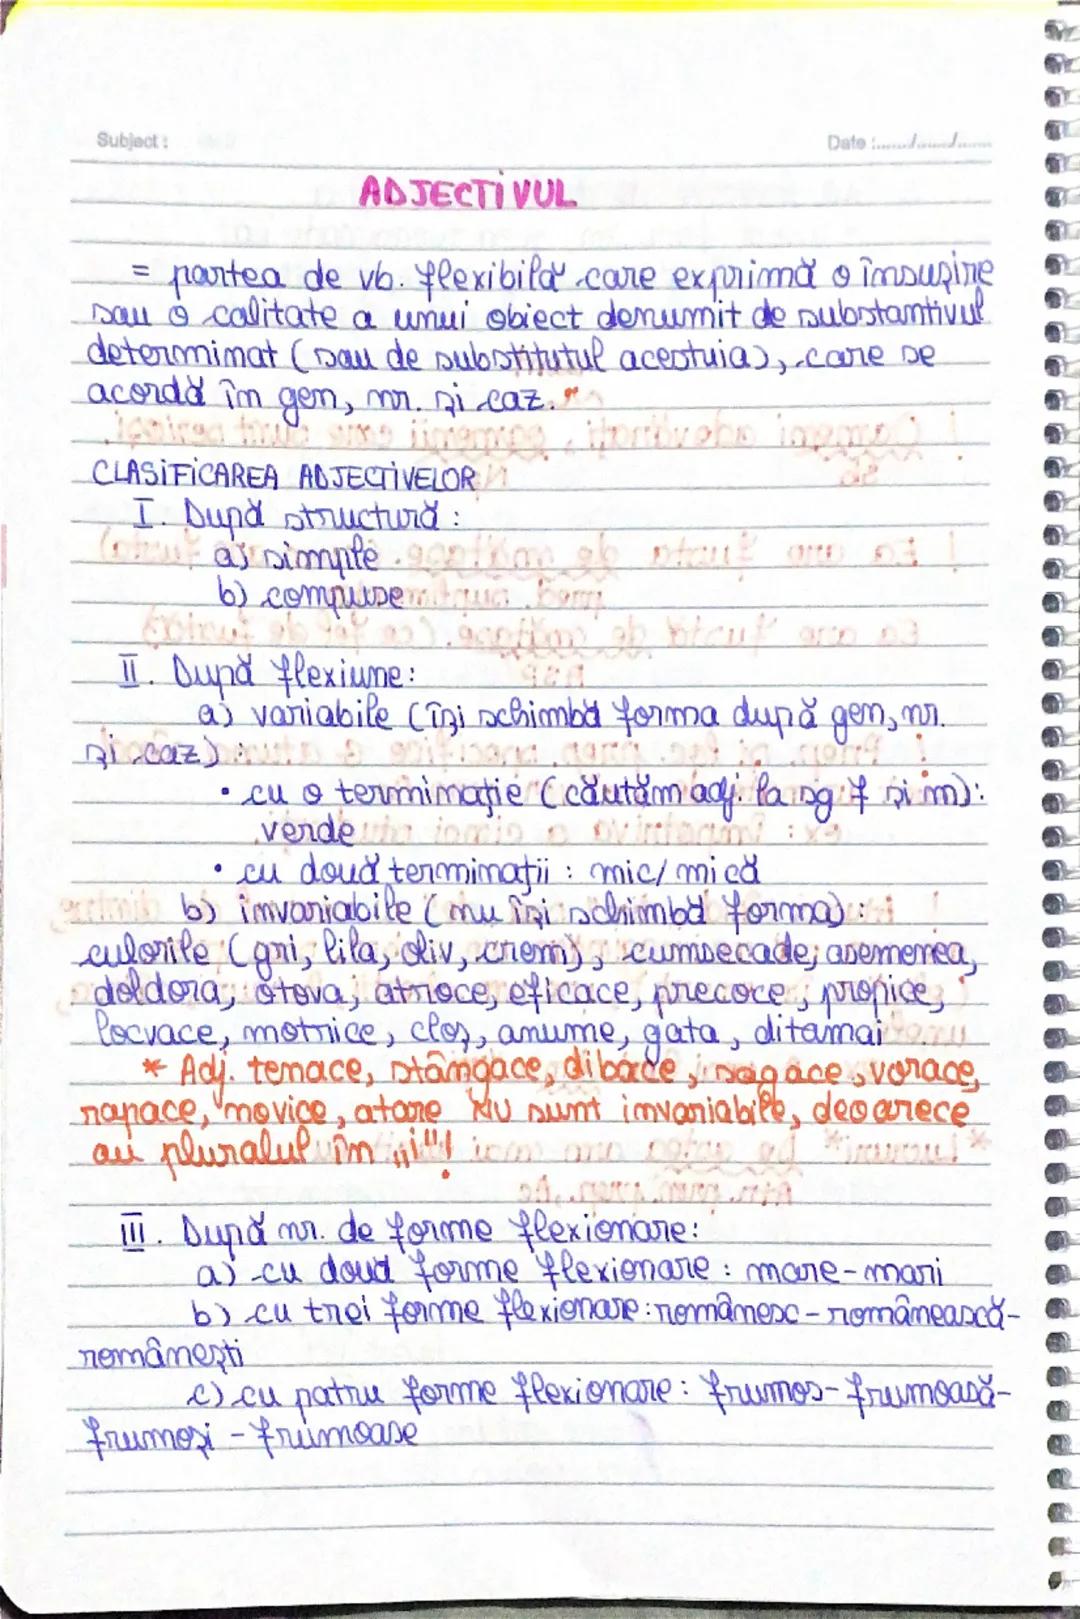 Subject :
Date :....../....../......
ADJECTIVUL
= partea de vb. flexibilă care exprimă o însușire
sau o calitate a unui obiect denumit de substantivul
determinat (sau de substitutul acestuia), care se
acordă în gen, nr. și caz.
CLASIFICAREA ADJECTIVELOR
I. După structură :
a) simple
b) compuse
II. După flexiune:
a) variabile (își schimbă forma după gen, nr.
și caz) :
• cu o terminație (căutăm adj. la sg f și m):
verde
• cu două terminații : mic/mică
b) invariabile (nu își schimbă forma) :
culorile (gri, lila, oliv, crem), cumsecade, asemenea,
doldora, otova, atroce, eficace, precoce, propice,
locvace, motrice, cloș, anume, gata, ditamai
* Adj. tenace, stângace, dibace, sagace, vorace,
rapace, novice, atare NU sunt invariabile, deoarece
au pluralul în „i"!
III. După nr. de forme flexionare:
a) cu două forme flexionare : mare-mari
b) cu trei forme flexionare: românesc - românească-
românești
c) cu patru forme flexionare : frumos- frumoasă-
frumoși - frumoase